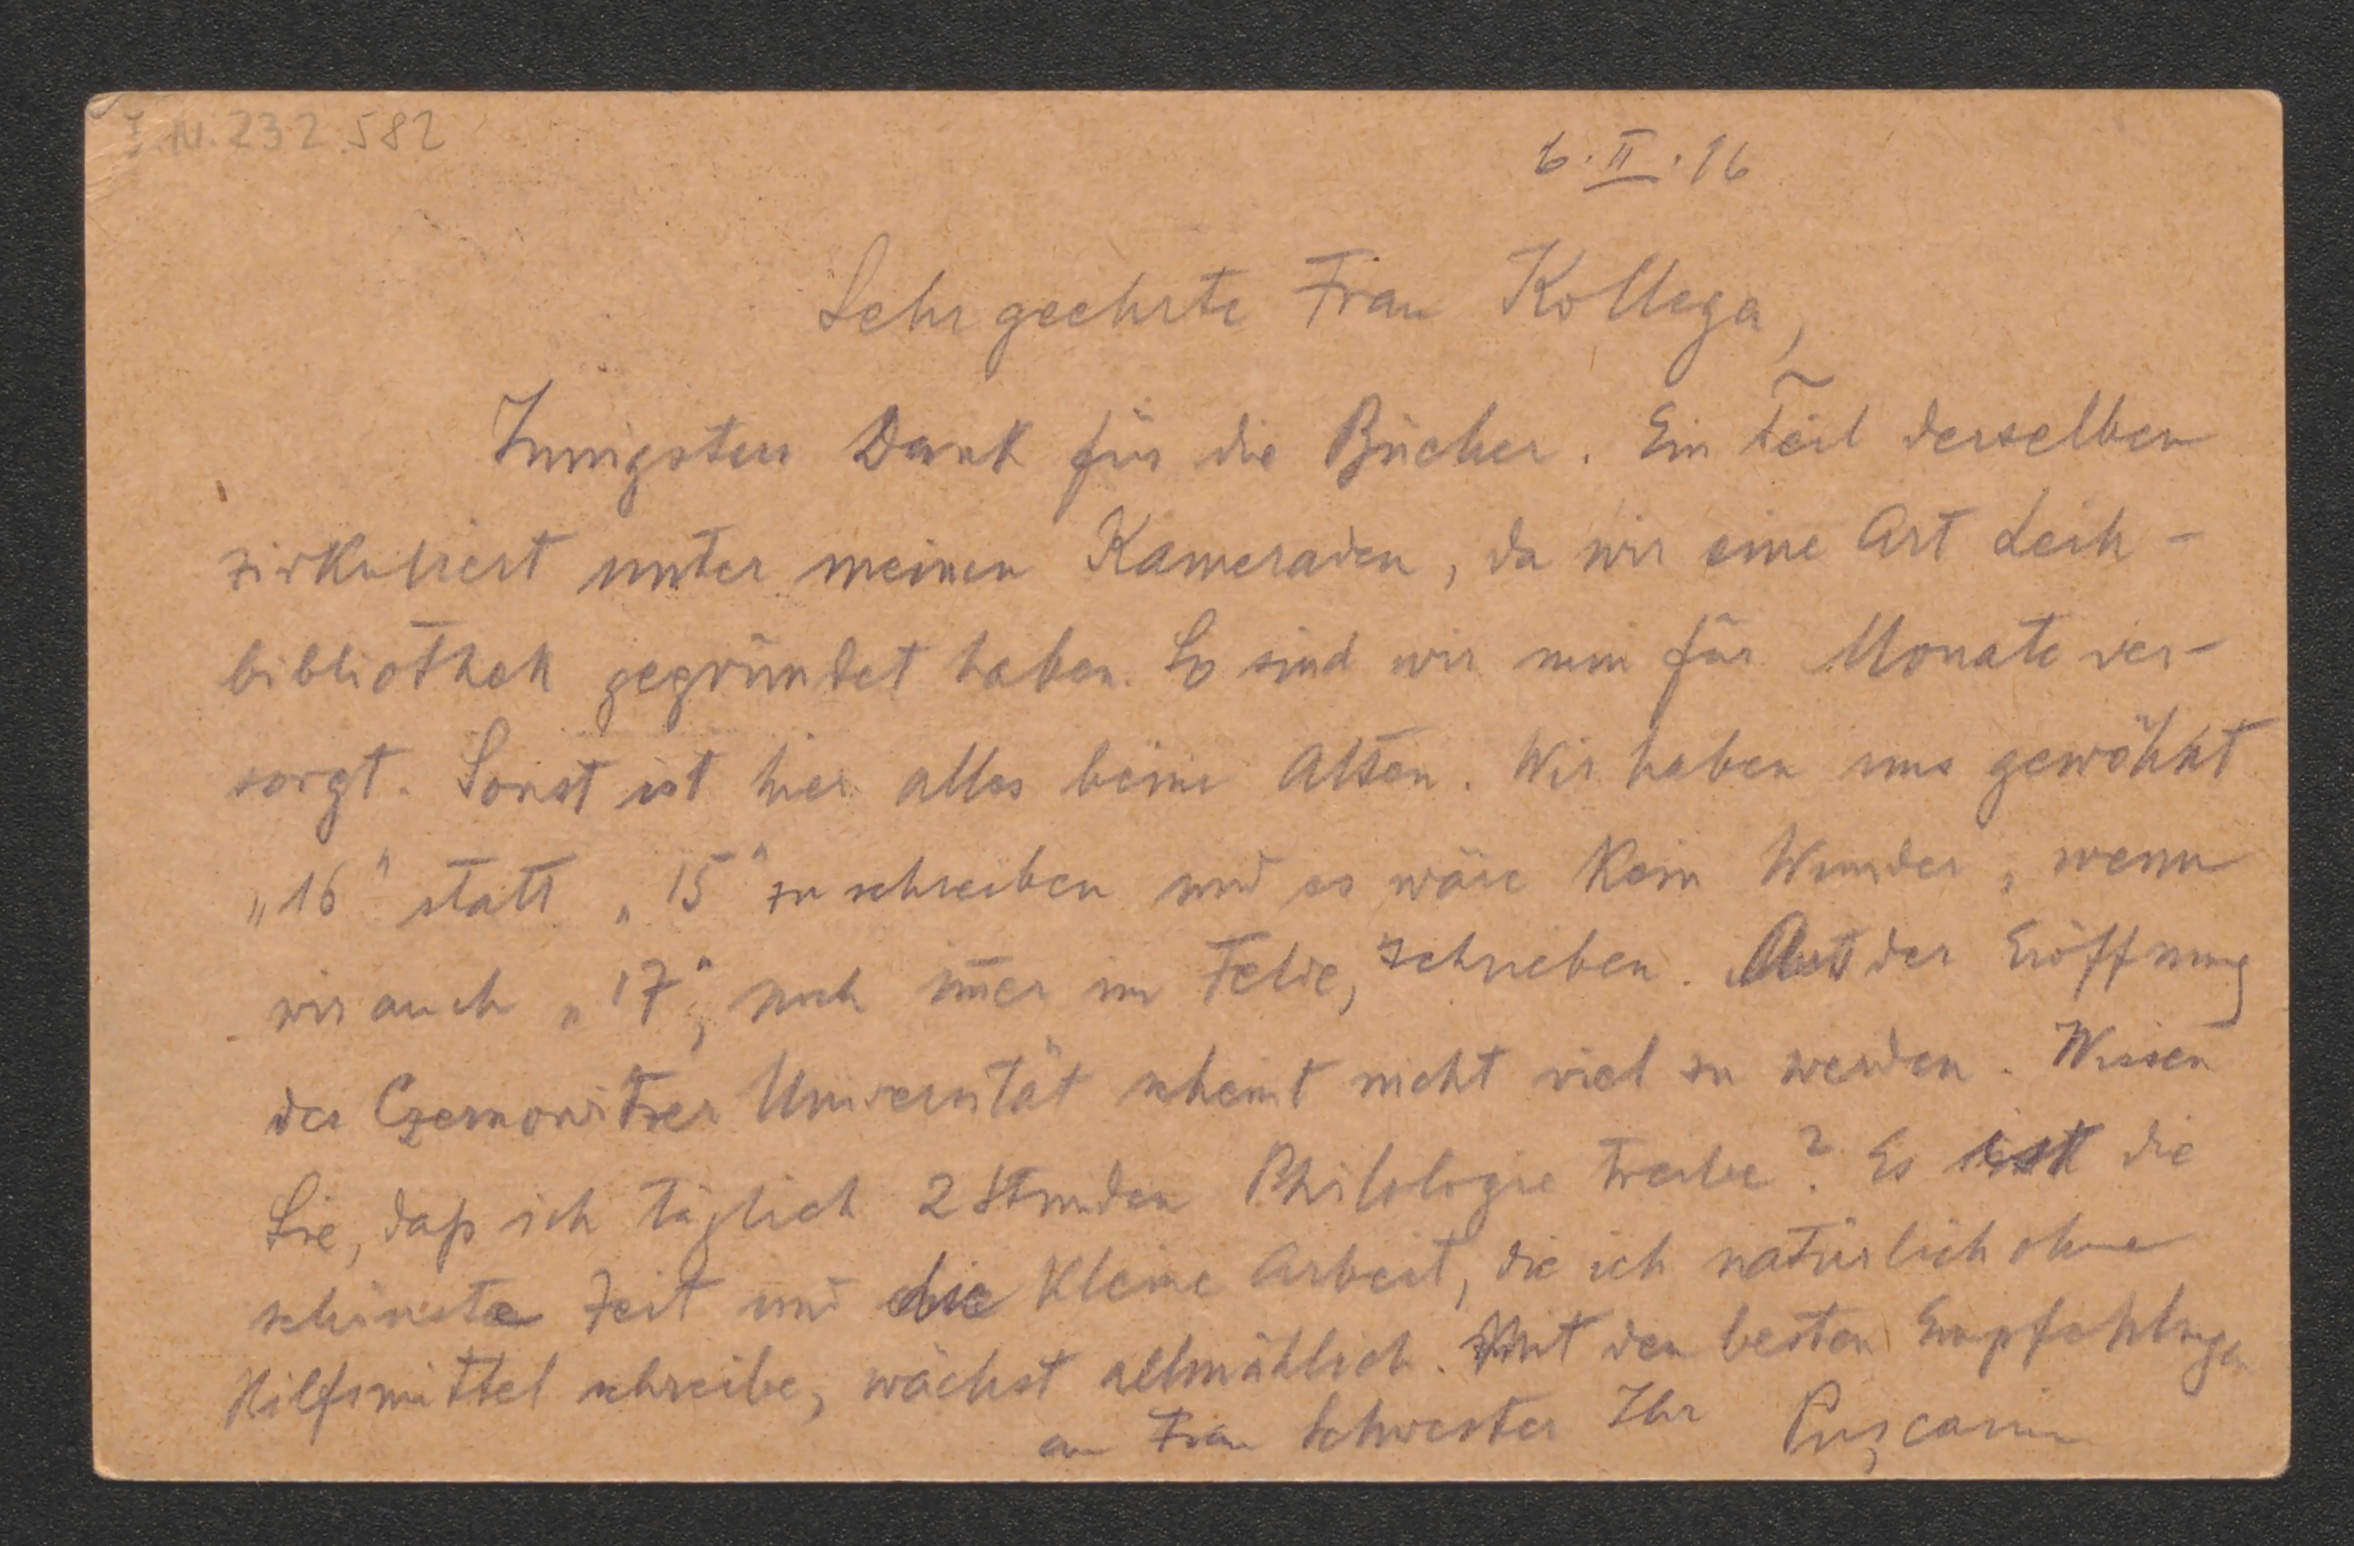 I.N. 232.582
6.II.16
Sehr geehrte Frau Kollega,
Innigsten Dank für die Bücher. Ein Teil derselben
zirkuliert unter meinen Kameraden, da wir eine Art Leih-
bibliothek gegründet haben. So sind wir nun für Monate ver-
sorgt. Sonst ist hier alles beim Alten. Wir haben uns gewöhnt
„16“ statt „15“ zu schreiben und es wäre kein Wunder, wenn
wir auch „17“, noch im̅er im Felde, schrieben. Aus der Eröffnung
der Czernowitzer Universität scheint nicht viel zu werden. Wissen
Sie, daß ich täglich 2 Stunden Philologie treibe? Es ist die
schönste Zeit und die kleine Arbeit, die ich natürlich ohne
Hilfsmittel schreibe, wächst allmählich. Mit den besten Empfehlungen
an Frau Schwester Ihr Pușcariu